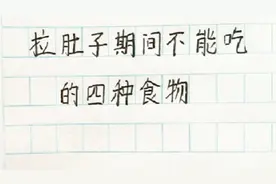 拉肚子期间不能吃
的四种食物